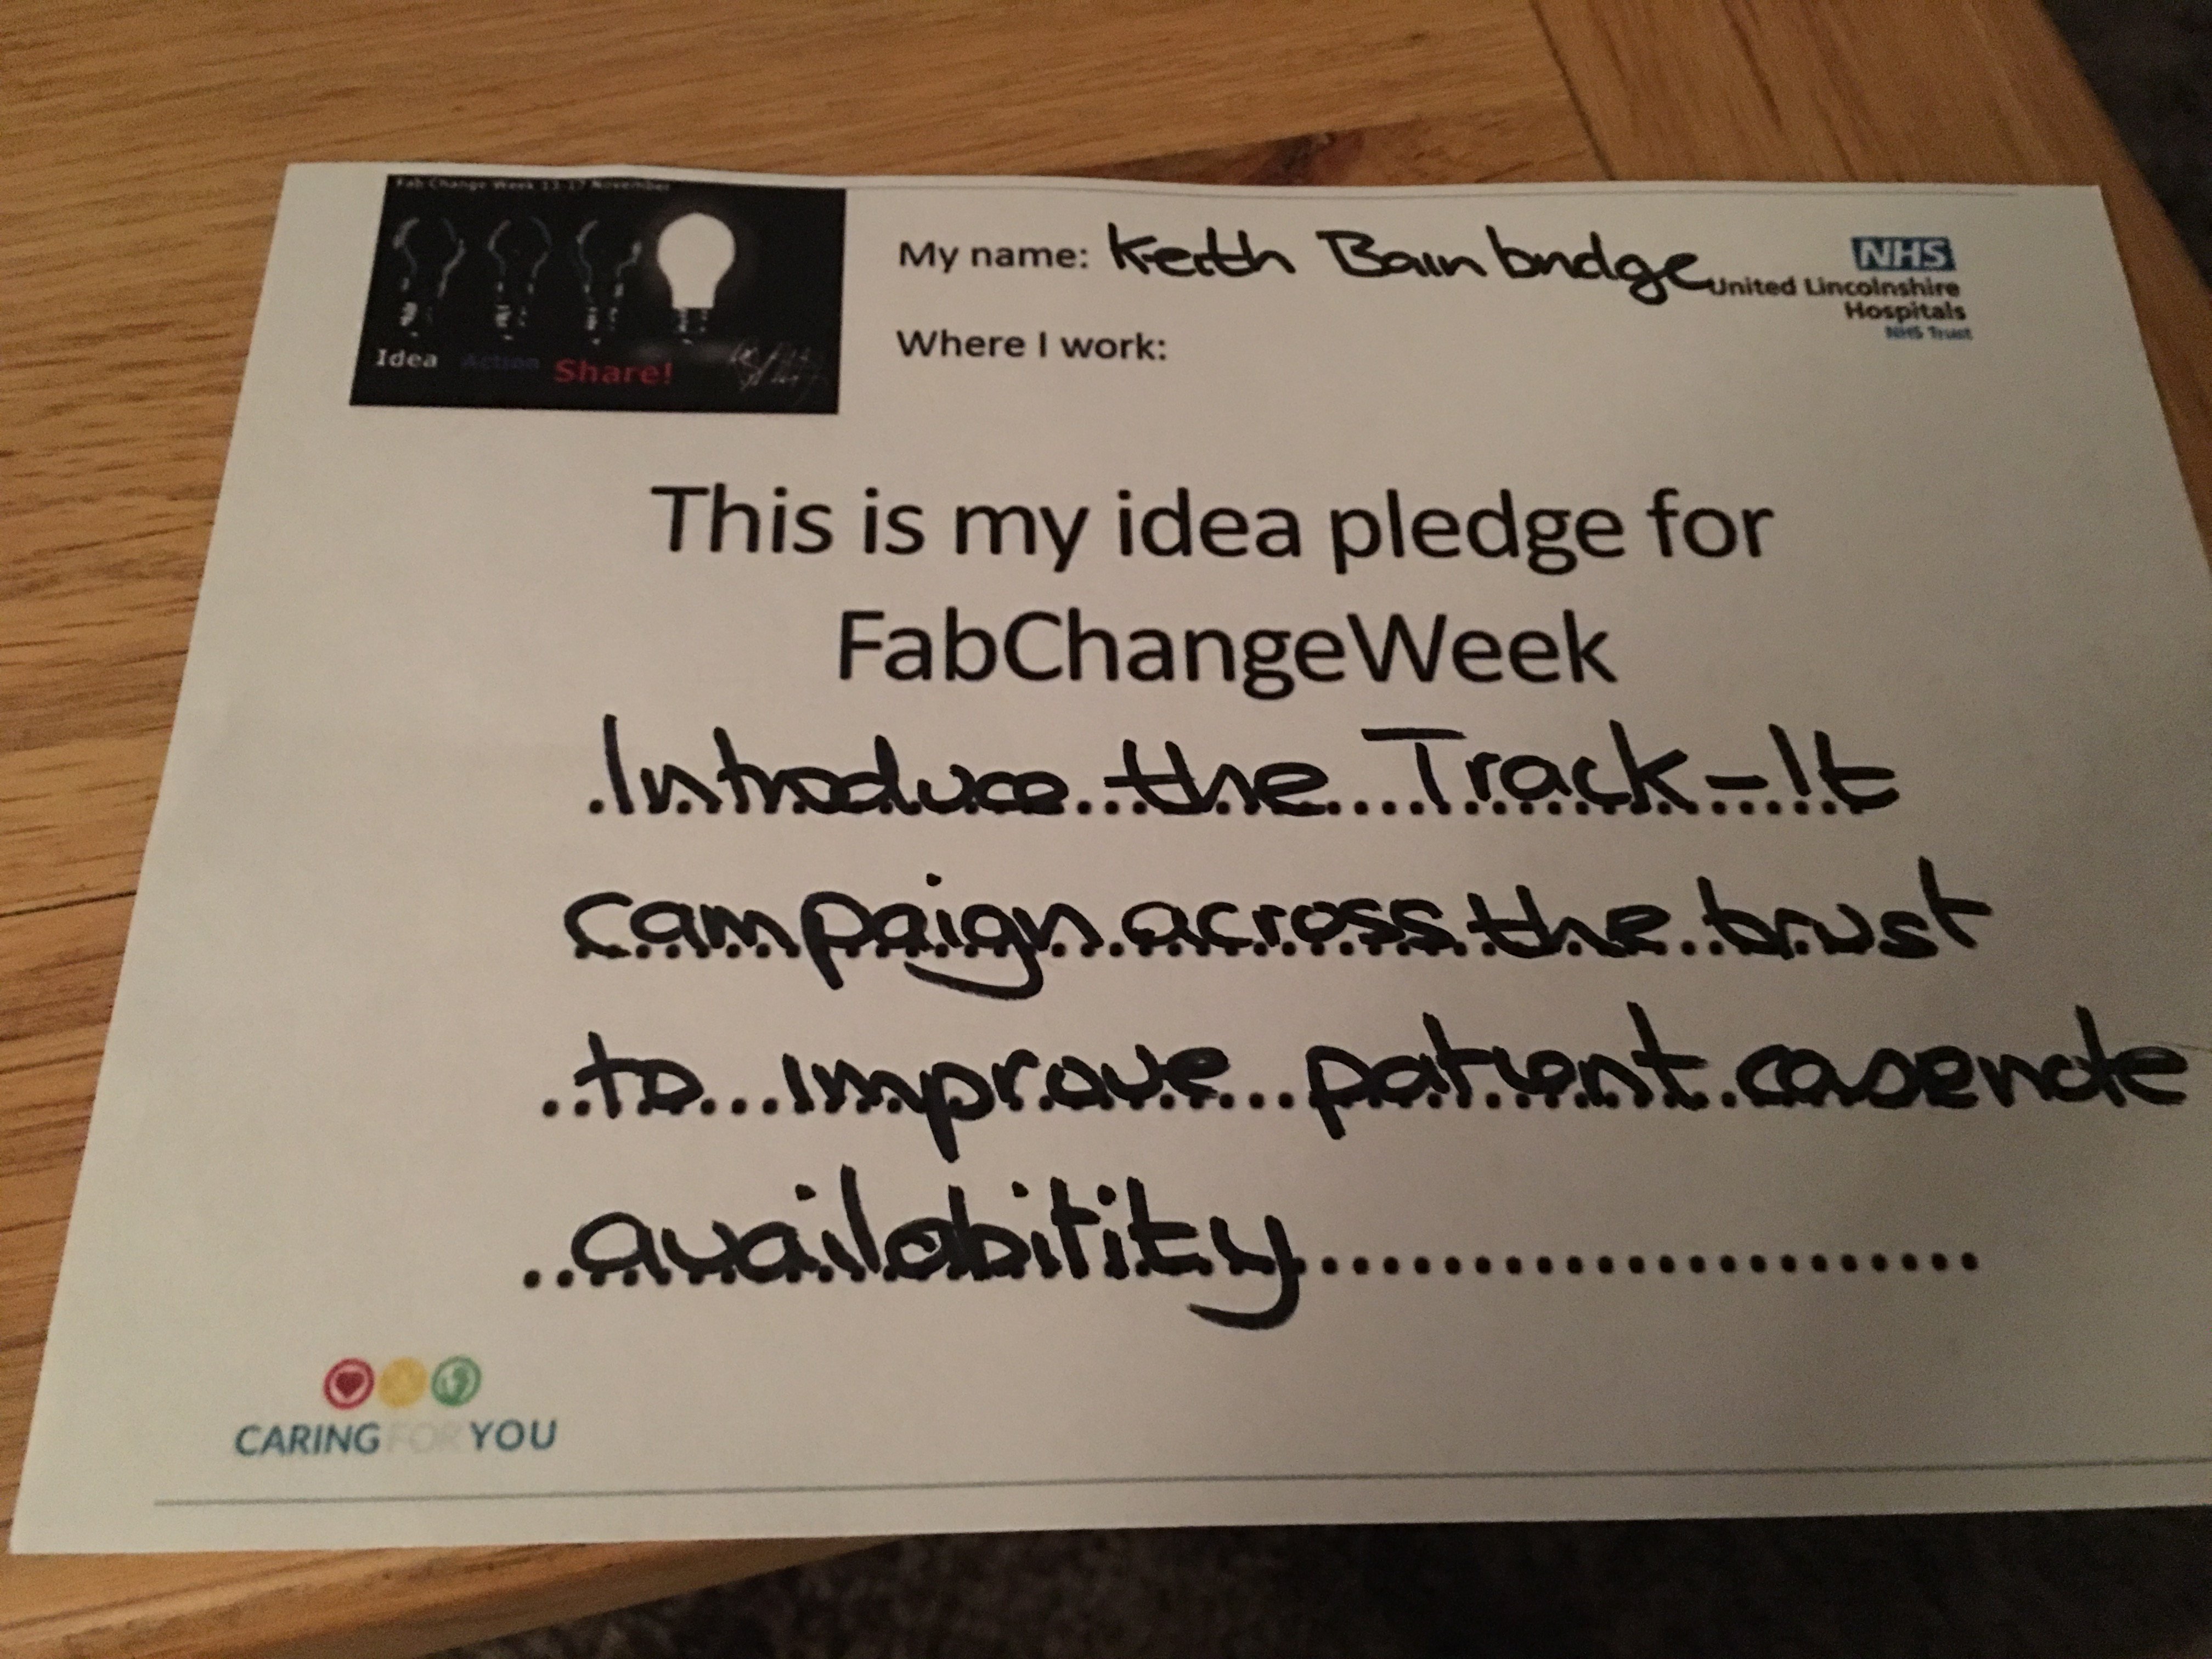 Fab Change Week 13-17 November
Idea Action Share!
My name: Keith Bainbridge
NHS
United Lincolnshire
Hospitals
NHS Trust
Where I work:
This is my idea pledge for
FabChangeWeek
Introduce the Track-It
campaign across the trust
to improve patient casenote
availability
CARING FOR YOU